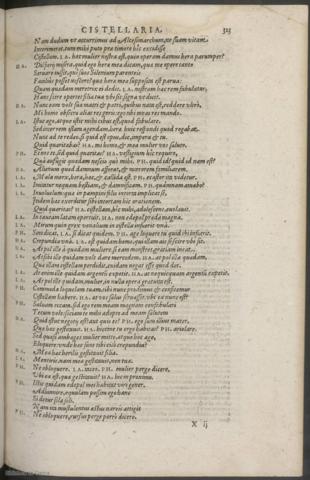 CISTELLARIA. 323
Nam dudum ut accurrimus ad Alcesimarchum, ne suam vitam
Interimeret, tum mihi puto præ timore hîc excidisse
Cistellam. LA. hæc mulier nostra est, quin operam damus hera parumper?
HA. Disperij misera, quid ego heræ meæ dicam, quæ me opere tanto
Servare iussit, qui suos Silenium parenteis
Facilius posset noscere? quæ heræ meæ supposita est parva:
Quam quædam meretrix ei dedit. LA. nostram hæc rem fabulatur,
Hanc scire oportet filia tua ubi sit signa ut dicit.
HA. Nunc eam volt suæ matri & patri, quibus nata est, reddere ultrò,
Mi homo obsecro alias res geris: ego tibi meas res mando.
LA. Istuc ago, atque istic mihi cibus est, quod fabulare.
Sed inter rem istam agendam, heræ huic respondi quod rogabat.
Nunc ad te redeo. si quid est opus, dic, impera tu
Quid quæritabas? HA. mi homo, & mea mulier vos saluto.
PH. Et nos te. sed quid quæritas? HA. vestigium hîc requiro,
Quà aufugit quædam nescio quid mihi. PH. quid id? quid id nam est?
HA. Alienum quod damnum afferat, & mœrorem familiarem.
LA. Mala merx, hera, hæc, & callida est. PH. ecastor ita videtur.
LA. Imitatur nequam bestiam, & damnificam. PH. quamnam amabo?
LA. Involvulum: quæ in pampini folio intorta implicat se,
Itidem hæc exorditur sibi intortam hîc orationem.
Quid quæritas? HA. cistellam, hîc mihi, adolescens, evolavit.
LA. In caveam latam oportuit. HA. non edepol præda magna.
LA. Mirum quin grex venalium in cistella infuerit unà.
PH. Sine dicat. LA. si dicat quidem. PH. age loquere tu quid ibi infuerit.
HA. Crepundia una. LA. est quidam homo, qui illam ait se scire ubi sit.
HA. At pol ille à quadam muliere, si eam monstret gratiam ineat.
LA. At sibi ille quidam volt dare mercedem. HA. at pol illa quædam,
Quæ illam cistellam perdidit, quidam negat esse quod det.
LA. At enim ille quidam argenti expetit. HA. at nequicquam argenti expetit.
LA. At pol ille quidam, mulier, in nulla opera gratuita est.
PH. Commoda loquelam tuam, tibi nunc proderimus & confitemur
Cistellam habere. HA. at vos Salus servassit. ubi ea nunc est?
PH. Salvam eccam. sed ego rem meam magnam confabulari
Tecum volo: sociam te mihi adopto ad meam salutem
HA. Quid istuc negoti est? aut quis es? PH. ego sum illius mater,
Quæ hæc gestitavit. HA. hiccine tu ergo habitas? PH. ariolare.
Sed quæso ambages mulier mitte, atque hoc age,
Eloquere: unde hæc sunt tibi citò crepundia?
HA. Mea hæc herilis gestitavit filia.
LA. Mentiris, nam mea gestitavit, non tua.
PH. Ne obloquere. LA. taceo. PH. mulier perge dicere,
Ubi ea est, quæ gestitavit? HA. hîc in proximo.
PH. Istic quidem edepol mei habitat viri gener.
Adiuniore, equidem possim ego hanc
Si detur sola sibi.
LA. Nam vis mustulentus æstus nareis attigit
PH. Ne obloquere, rursus perge porrò dicere.
X ij